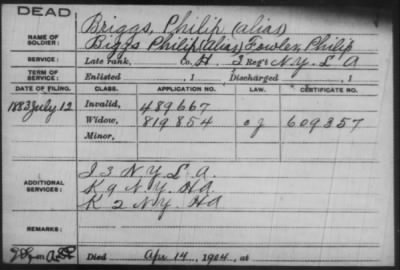 DEAD
Briggs, Philip (alias)
NAME OF SOLDIER: Biggs Philip (alias) Fowler, Philip
SERVICE: Late rank, Co. H. 3 Reg't N.Y. L A
TERM OF SERVICE: Enlisted , 1 Discharged , 1
DATE OF FILING. CLASS. APPLICATION NO. LAW. CERTIFICATE NO.
1883 July 12 Invalid, 489667
Widow, 819854 609357
Minor,
ADDITIONAL SERVICES: I 3 N Y L A.
K 9 N. Y. HA
K 2 N Y. HA
REMARKS:
Died Apr 14, 1904, at